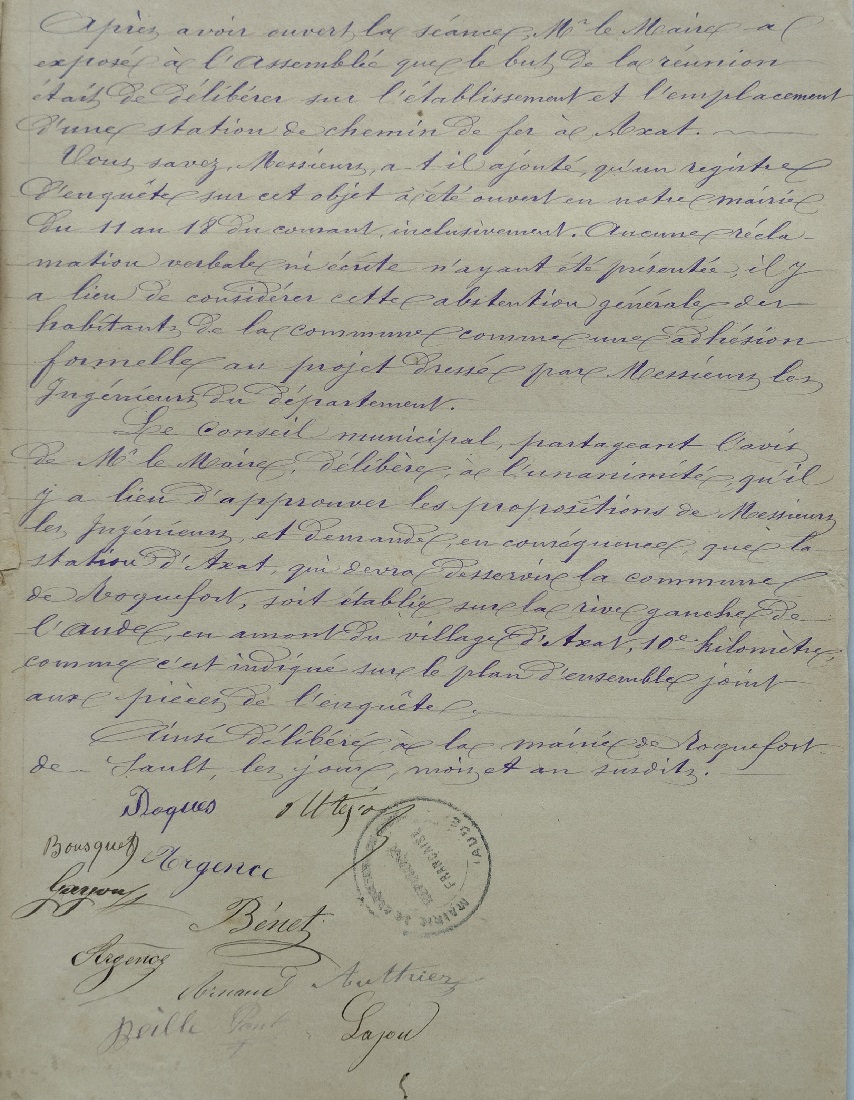 Après avoir ouvert la séance, Mr le Maire a
exposé à l'Assemblée que le but de la réunion
était de délibérer sur l'établissement et l'emplacement
d'une station de chemin de fer à Axat.
Vous savez, Messieurs, a-t-il ajouté, qu'un registre
d'enquête sur cet objet a été ouvert en notre mairie
du 11 au 18 du courant, inclusivement. Aucune récla-
mation verbale ni écrite n'ayant été présentée, il y
a lieu de considérer cette abstention générale des
habitants de la commune comme une adhésion
formelle au projet dressé par Messieurs les
Ingénieurs du département.
Le Conseil municipal, partageant l'avis
de Mr le Maire, délibère, à l'unanimité, qu'il
y a lieu d'approuver les propositions de Messieurs
les Ingénieurs, et demande, en conséquence, que la
station d'Axat, qui devra desservir la commune
de Roquefort, soit établie sur la rive gauche de
l'Aude, en amont du village d'Axat, 10e kilomètre,
comme c'est indiqué sur le plan d'ensemble joint
aux pièces de l'enquête.
Ainsi délibéré à la mairie de Roquefort-
de-Sault, les jour, mois et an susdits.
Roques
Bousquet Argence
Bénet
Argence
Arnaud Authier
Lajou
MAIRIE DE
RÉPUBLIQUE
FRANÇAISE
(AUDE)